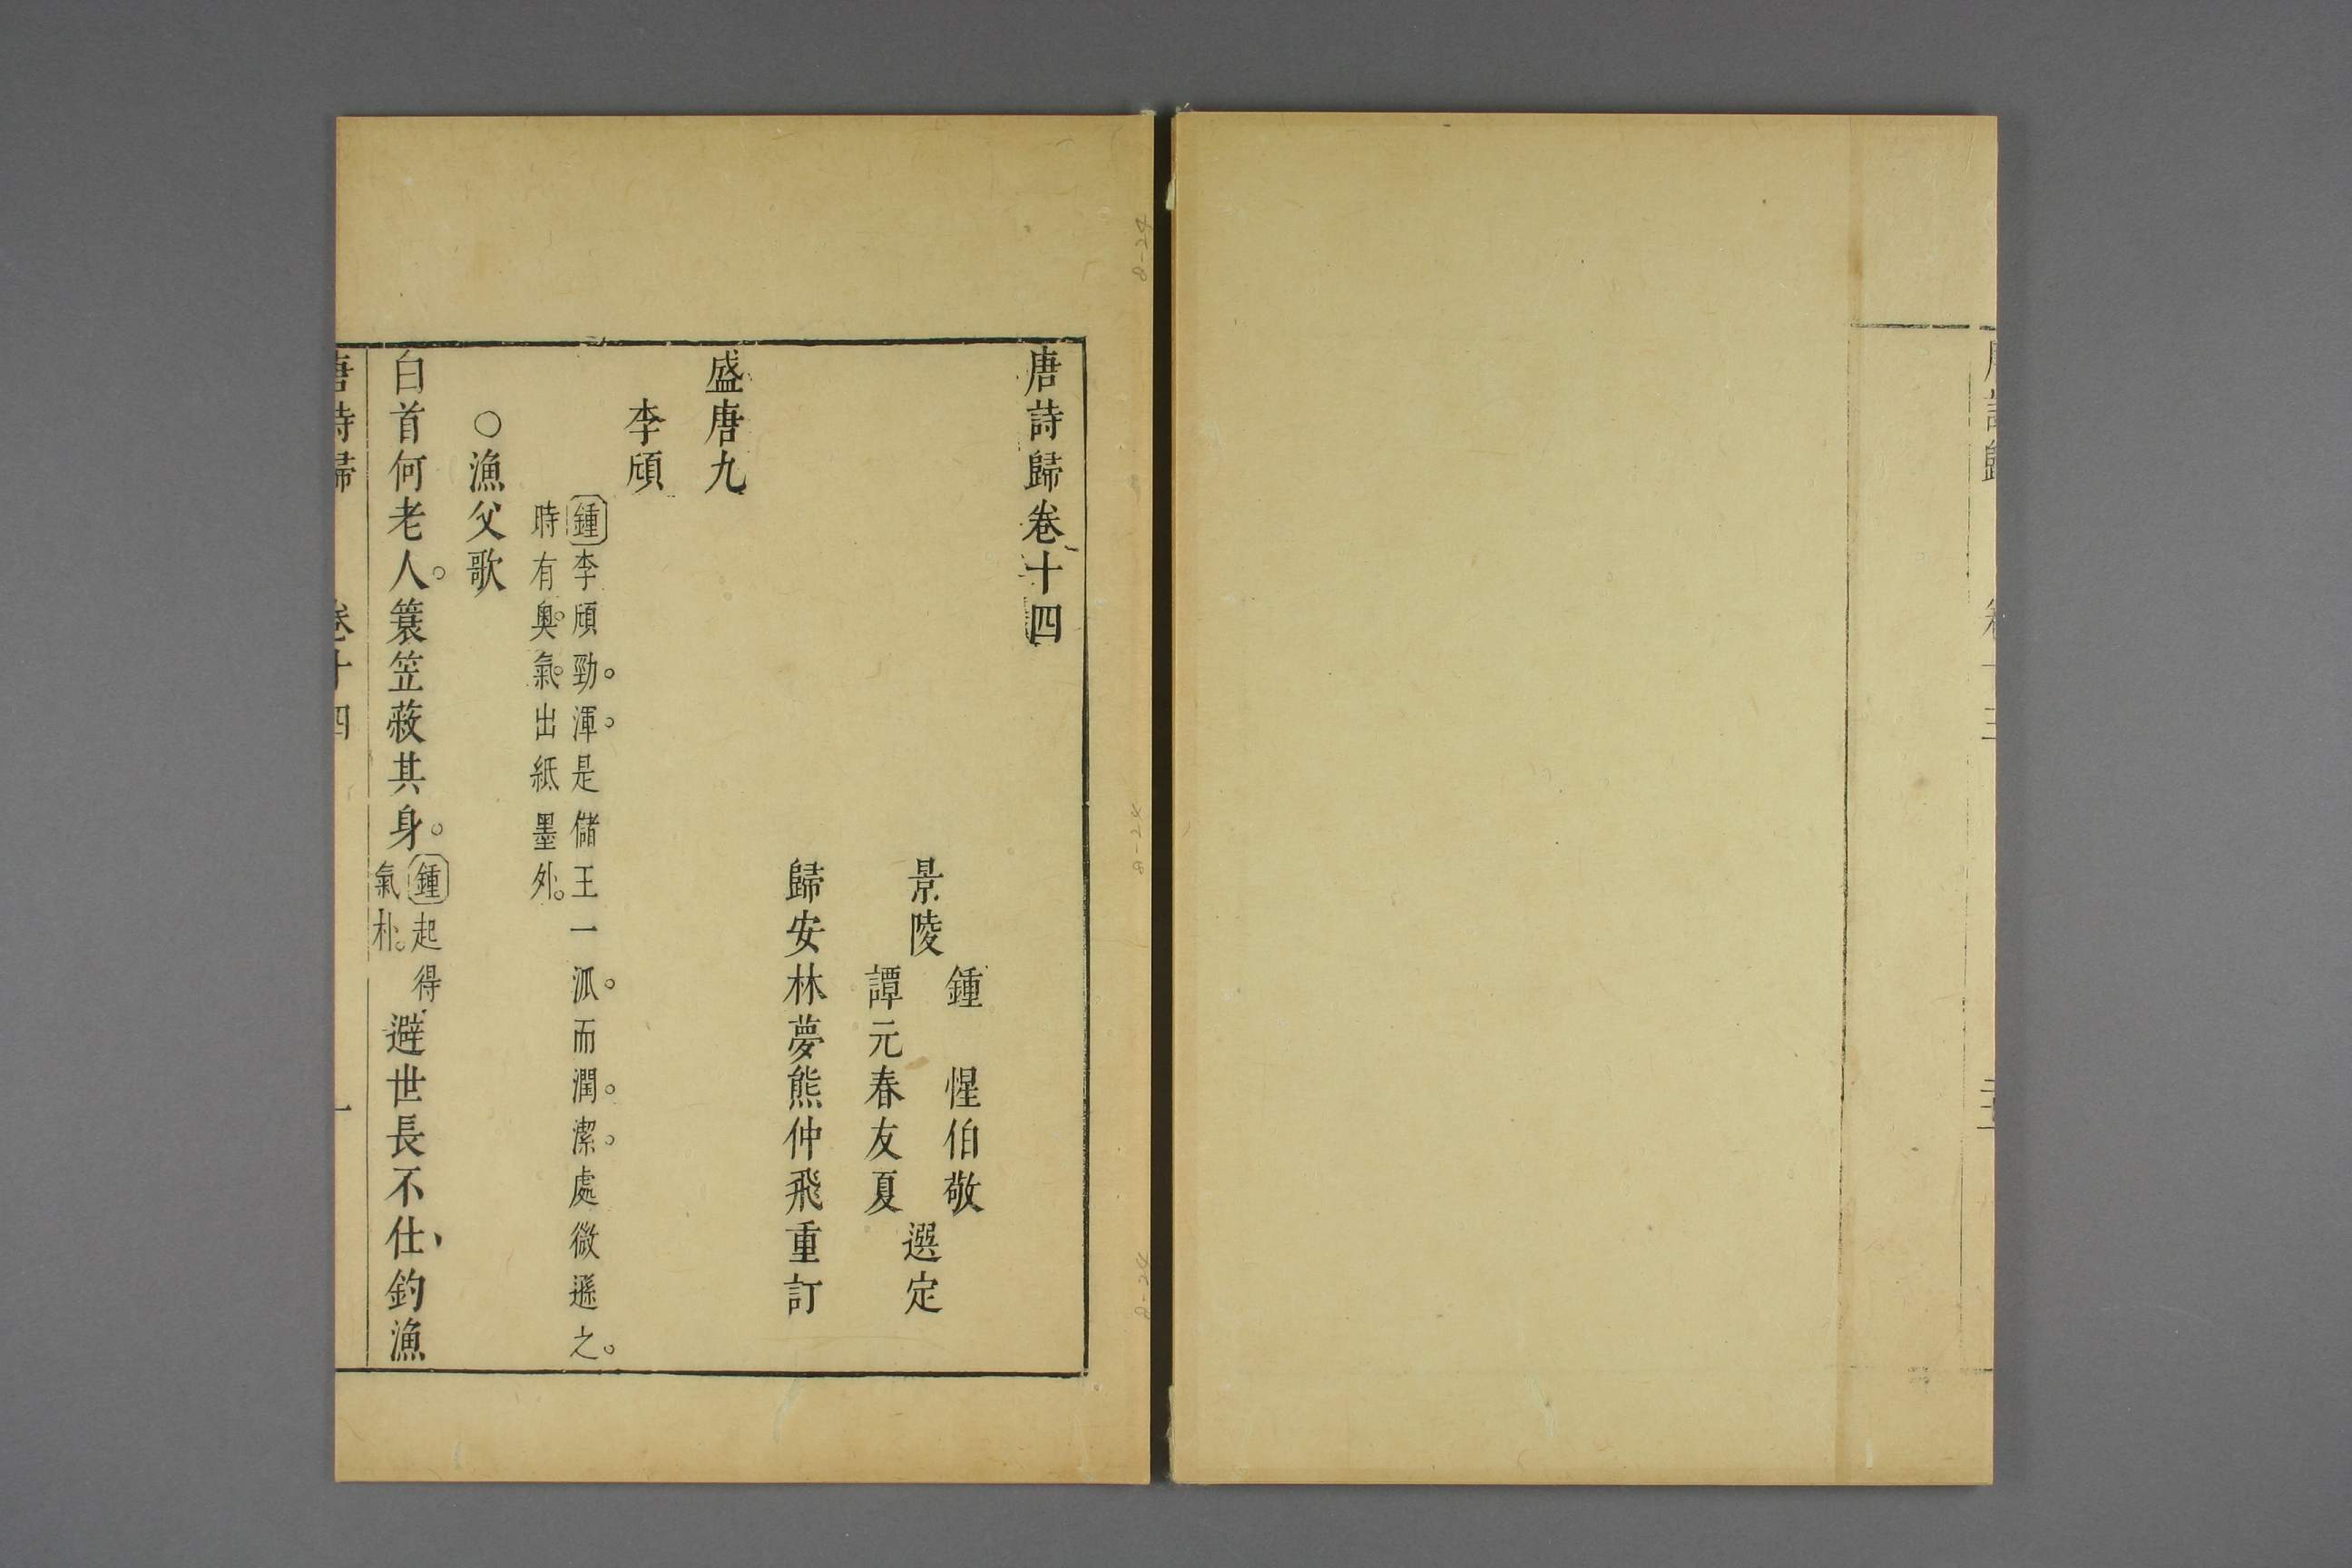 唐詩歸卷十四
景陵
鍾　惺伯敬
譚元春友夏
選定
歸安林夢熊仲飛重訂
盛唐九
李頎
鍾李頎勁。渾。是儲王一派。而潤。潔。處微遜之。
時有奧。氣。出紙墨外。
○漁父歌
白首何老人。簑笠蔽其身。
鍾起得
氣朴。
避世長不仕、釣漁
唐詩歸　卷十四　一
8-24
8-24
8-24